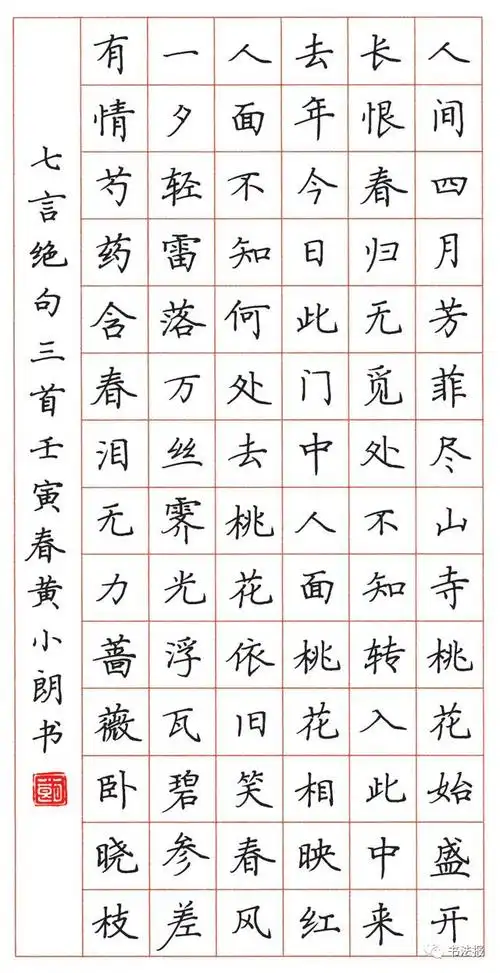 人间四月芳菲尽山寺桃花始盛开
长恨春归无觅处不知转入此中来
去年今日此门中人面桃花相映红
人面不知何处去桃花依旧笑春风
一夕轻雷落万丝霁光浮瓦碧参差
有情芍药含春泪无力蔷薇卧晓枝
七言绝句三首壬寅春黄小朗书
书法报